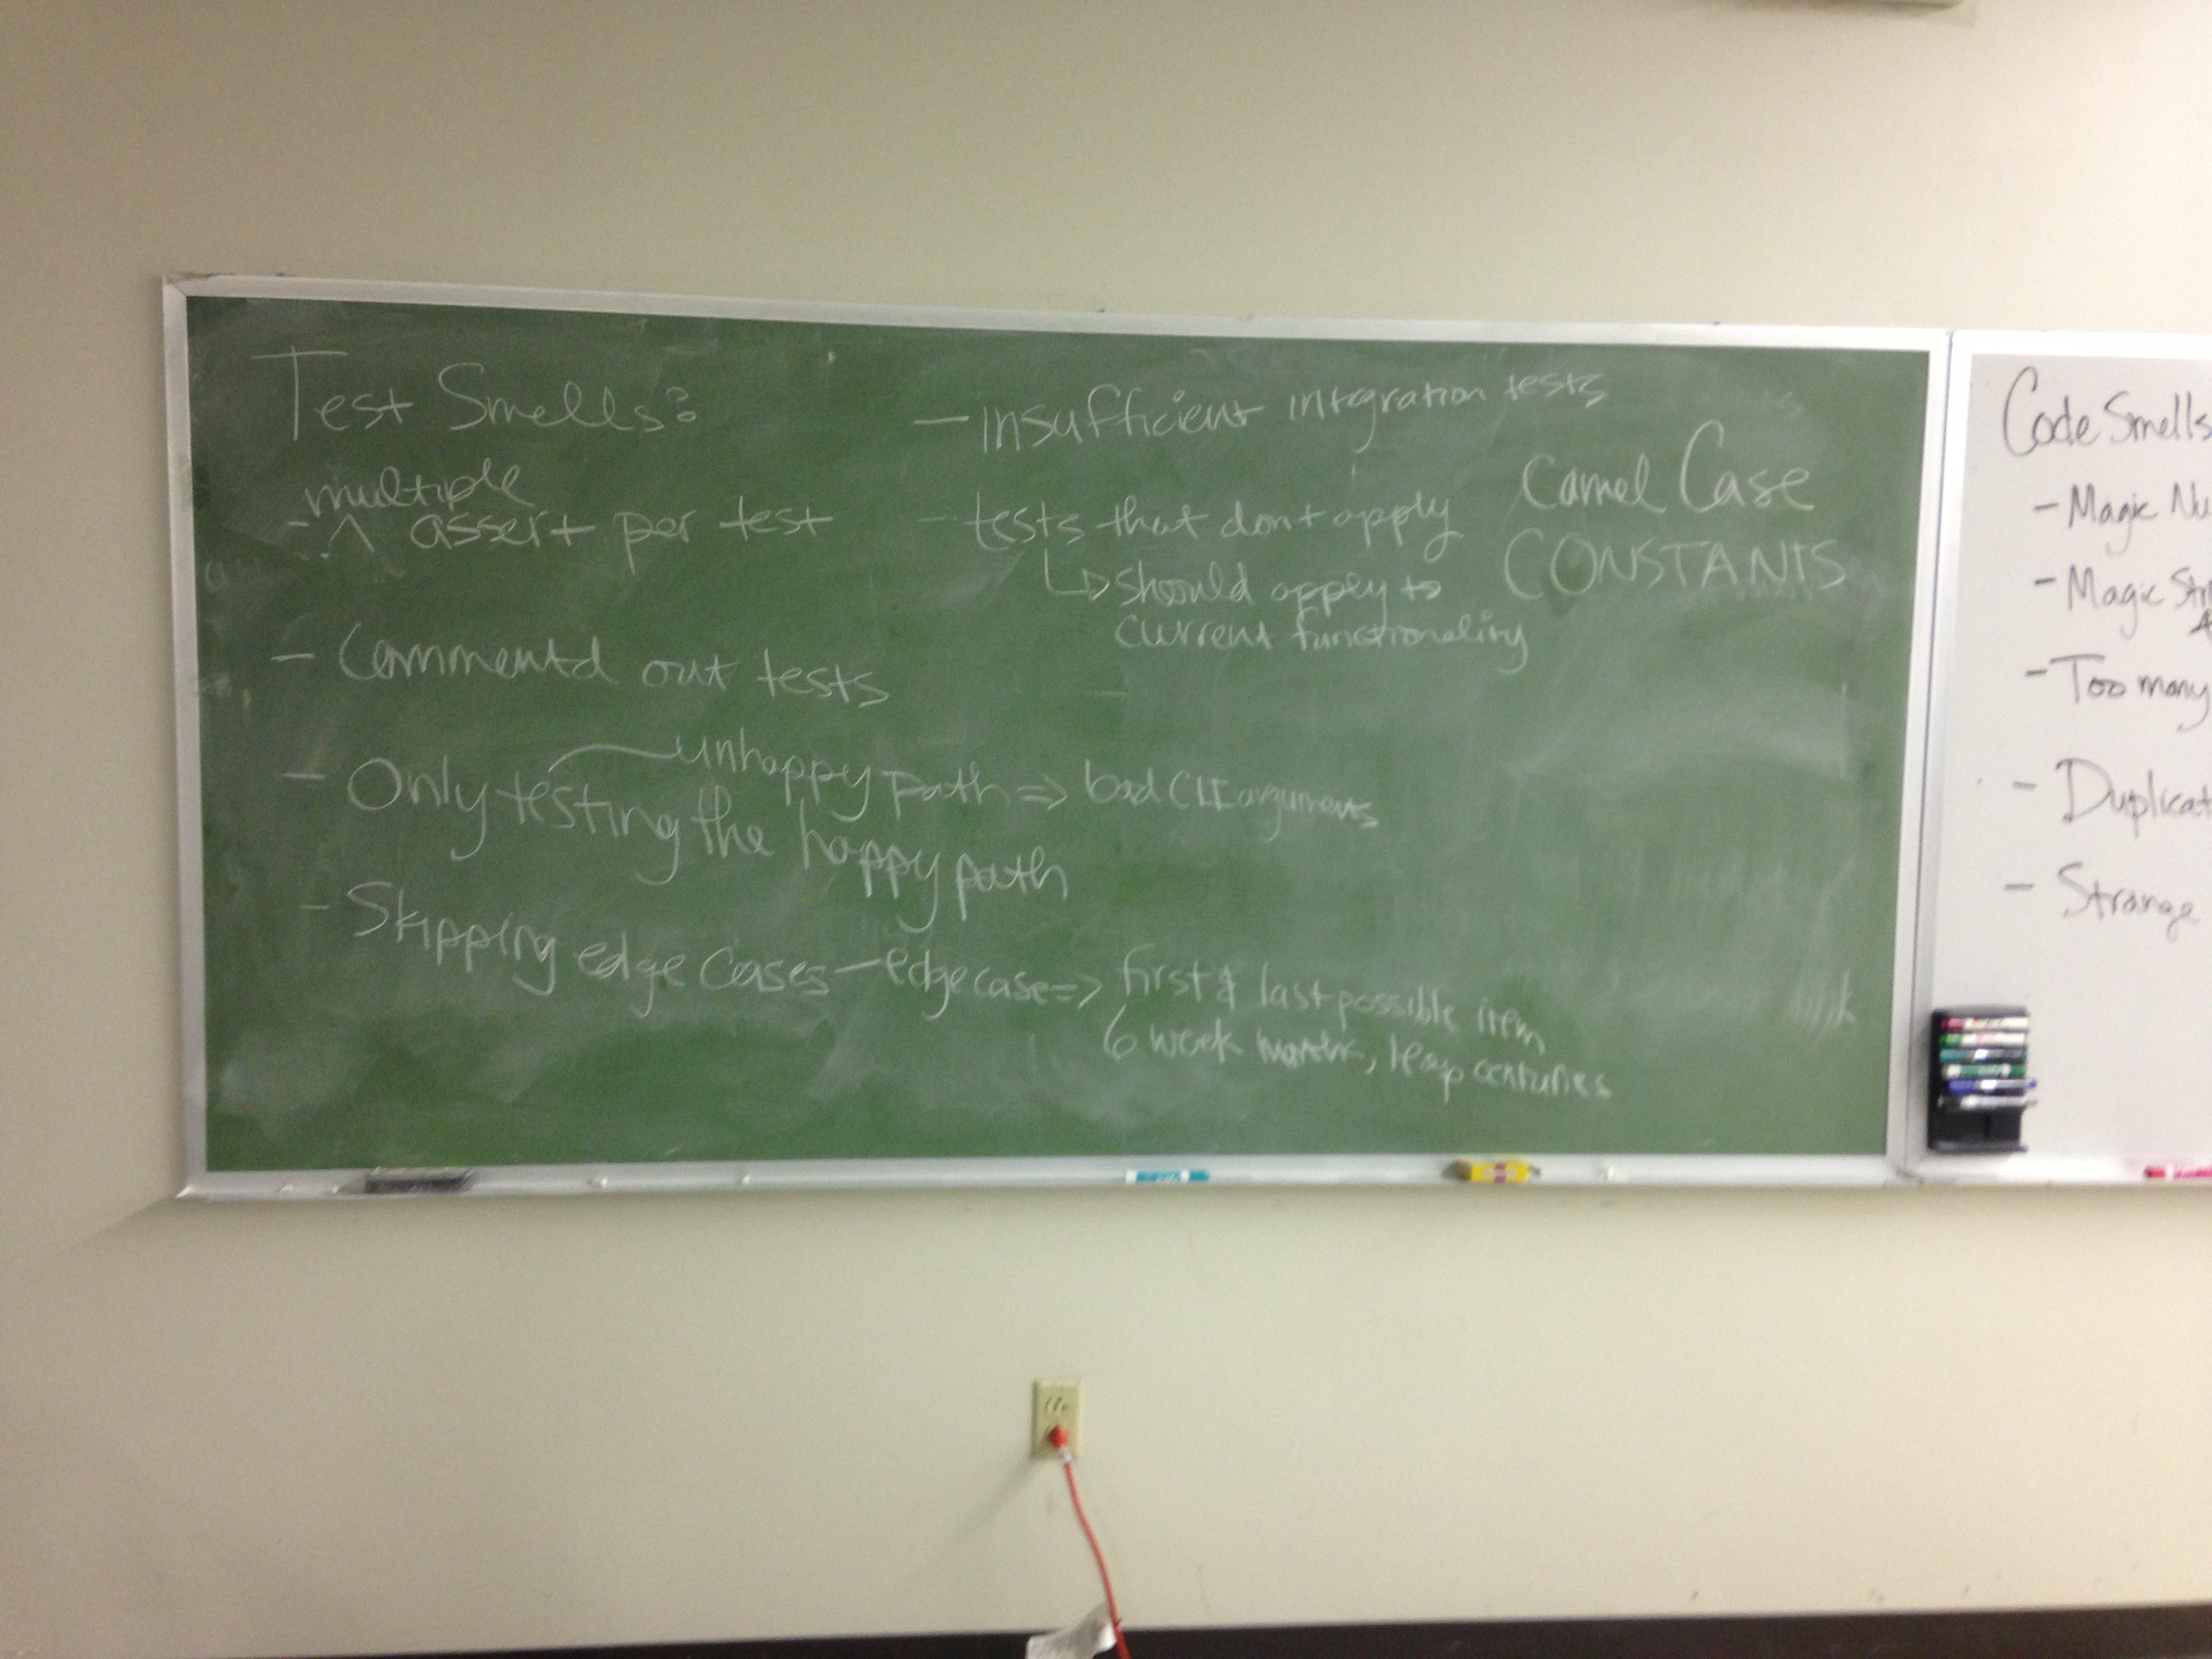 Test Smells:
multiple
- ^ assert per test
- Commentd out tests
unhappy path => bad CLI arguments
- Only testing the happy path
- Skipping edge cases - edge case => first & last possible item
6 week months, leap centuries
- Insufficient integration tests
- tests that dont apply
↳ should apply to
current functionality
Camel Case
CONSTANTS
Code Smells
- Magic Nu
- Magic Str
- Too many
- Duplicat
- Strange